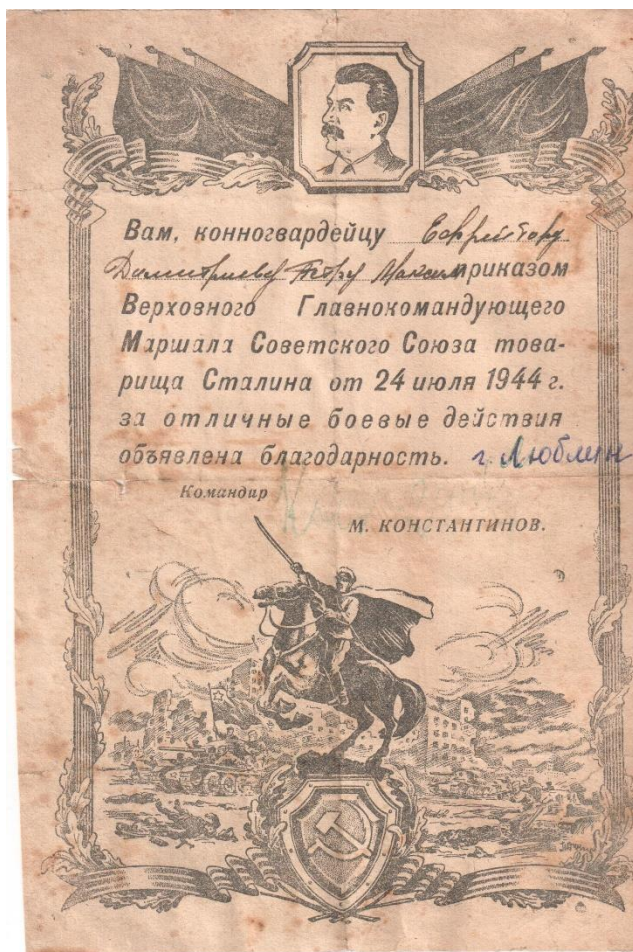 Вам, конногвардейцу Ефрейтору
Дмитриеву Петру Максим приказом
Верховного Главнокомандующего
Маршала Советского Союза това-
рища Сталина от 24 июля 1944 г.
за отличные боевые действия
объявлена благодарность. г. Люблин
Командир
М. КОНСТАНТИНОВ.